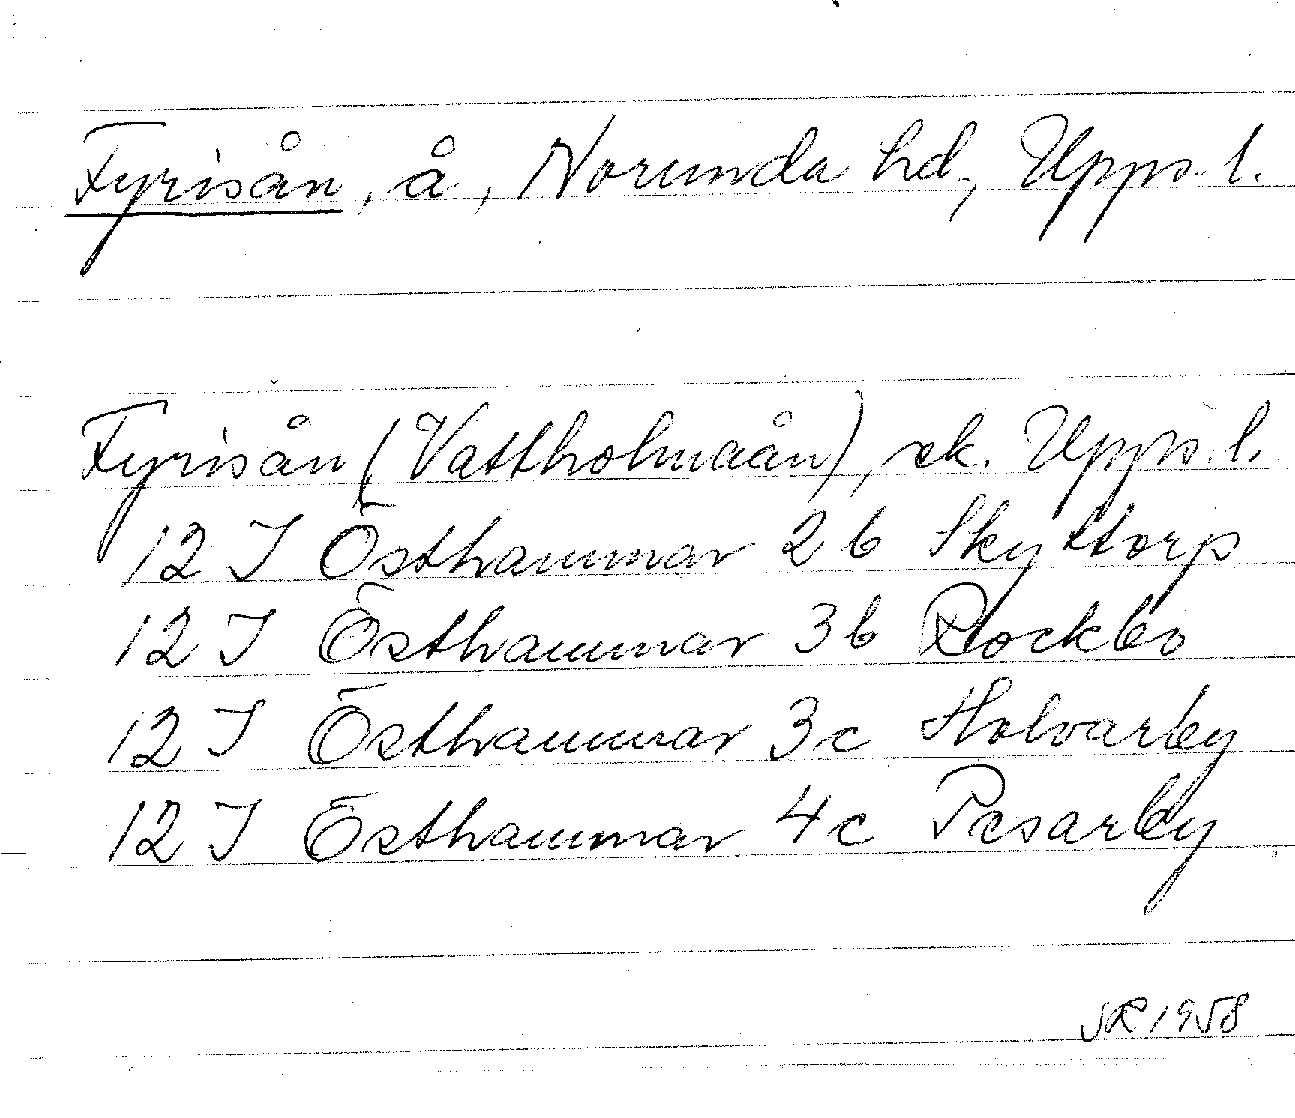 Fyrisån, å, Norunda hd, Upps. l.
Fyrisån (Vattholmaån), ek. Upps. l.
12 I Östhammar 2b Skyttorp
12 I Östhammar 3b Rockbo
12 I Östhammar 3c Holvarby
12 I Östhammar 4c Pesarby
1958